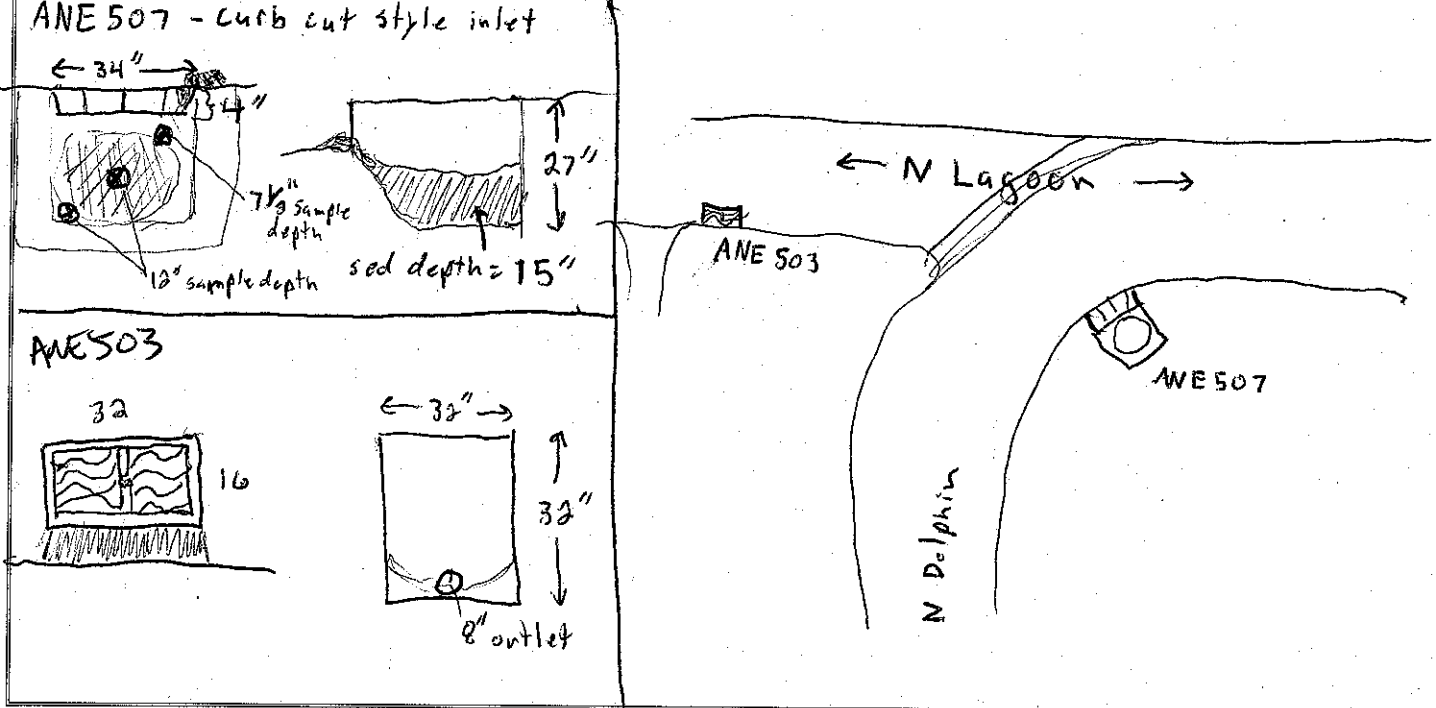 ANE 507 - Curb cut style inlet
34"
4"
27"
7½" sample
depth
12" sample depth
sed depth = 15"
ANE503
32
16
32"
32"
8" outlet
← N Lagoon →
ANE 503
ANE 507
N Dolphin